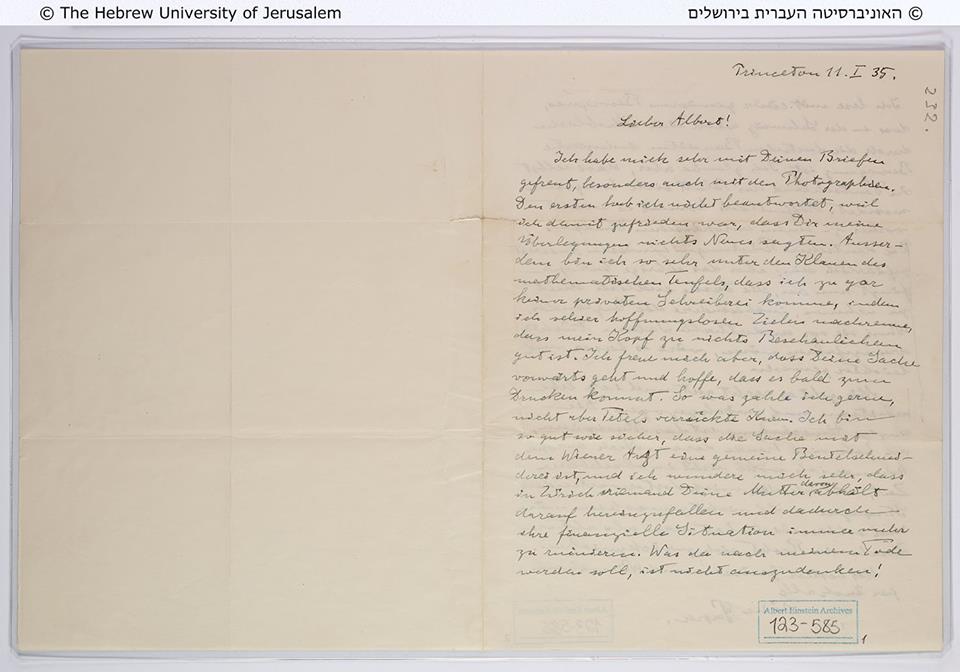 © The Hebrew University of Jerusalem
© האוניברסיטה העברית בירושלים
Princeton 11. I 35.
232.
Lieber Albert!
Ich habe mich sehr mit Deinen Briefen
gefreut, besonders auch mit den Photographien.
Den ersten hab ich nicht beantwortet, weil
ich damit zufrieden war, dass Dir meine
Überlegungen nichts Neues sagten. Ausser-
dem bin ich so sehr unter den Klauen des
mathematischen Teufels, dass ich zu gar
keiner privaten Schreiberei komme, indem
ich schier hoffnungslosen Zielen nachrenne,
dass mein Kopf zu nichts Beschaulichem
gut ist. Ich freue mich aber, dass Deine Sache
vorwärts geht und hoffe, dass es bald zum
Drucken kommt. So was zahle ich gerne,
nicht aber Tetels verrückte Kuren. Ich bin
so gut wie sicher, dass die Sache mit
dem Wiener Arzt eine gemeine Beutelschnei-
derei ist, und ich wundere mich sehr, dass
in Zürich niemand Deine Mutter davon abhält
darauf hereinzufallen und dadurch
ihre finanzielle Situation immer mehr
zu ruinieren. Was da nach meinem Tode
werden soll, ist nicht auszudenken!
Albert Einstein Archives
123-585
1